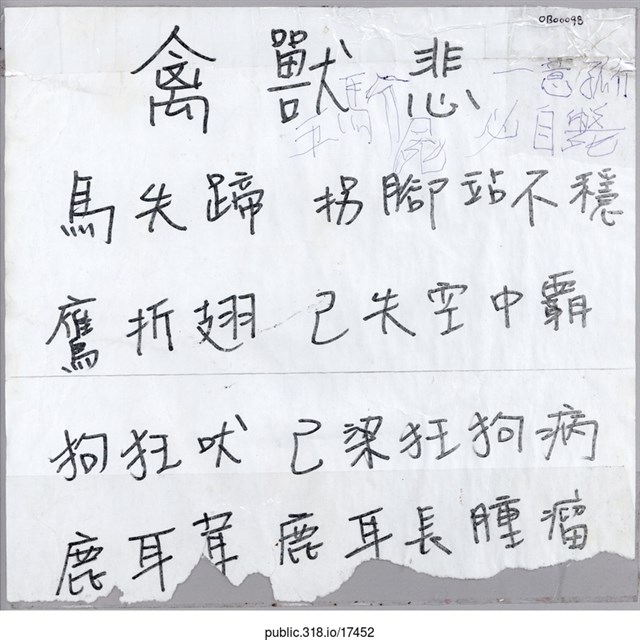 OB00098
禽獸悲
一意孤
必自斃
馬失蹄 拐腳站不穩
鷹折翅 己失空中霸
狗狂吠 己梁狂狗病
鹿耳茸 鹿耳長腫瘤
public.318.io/17452